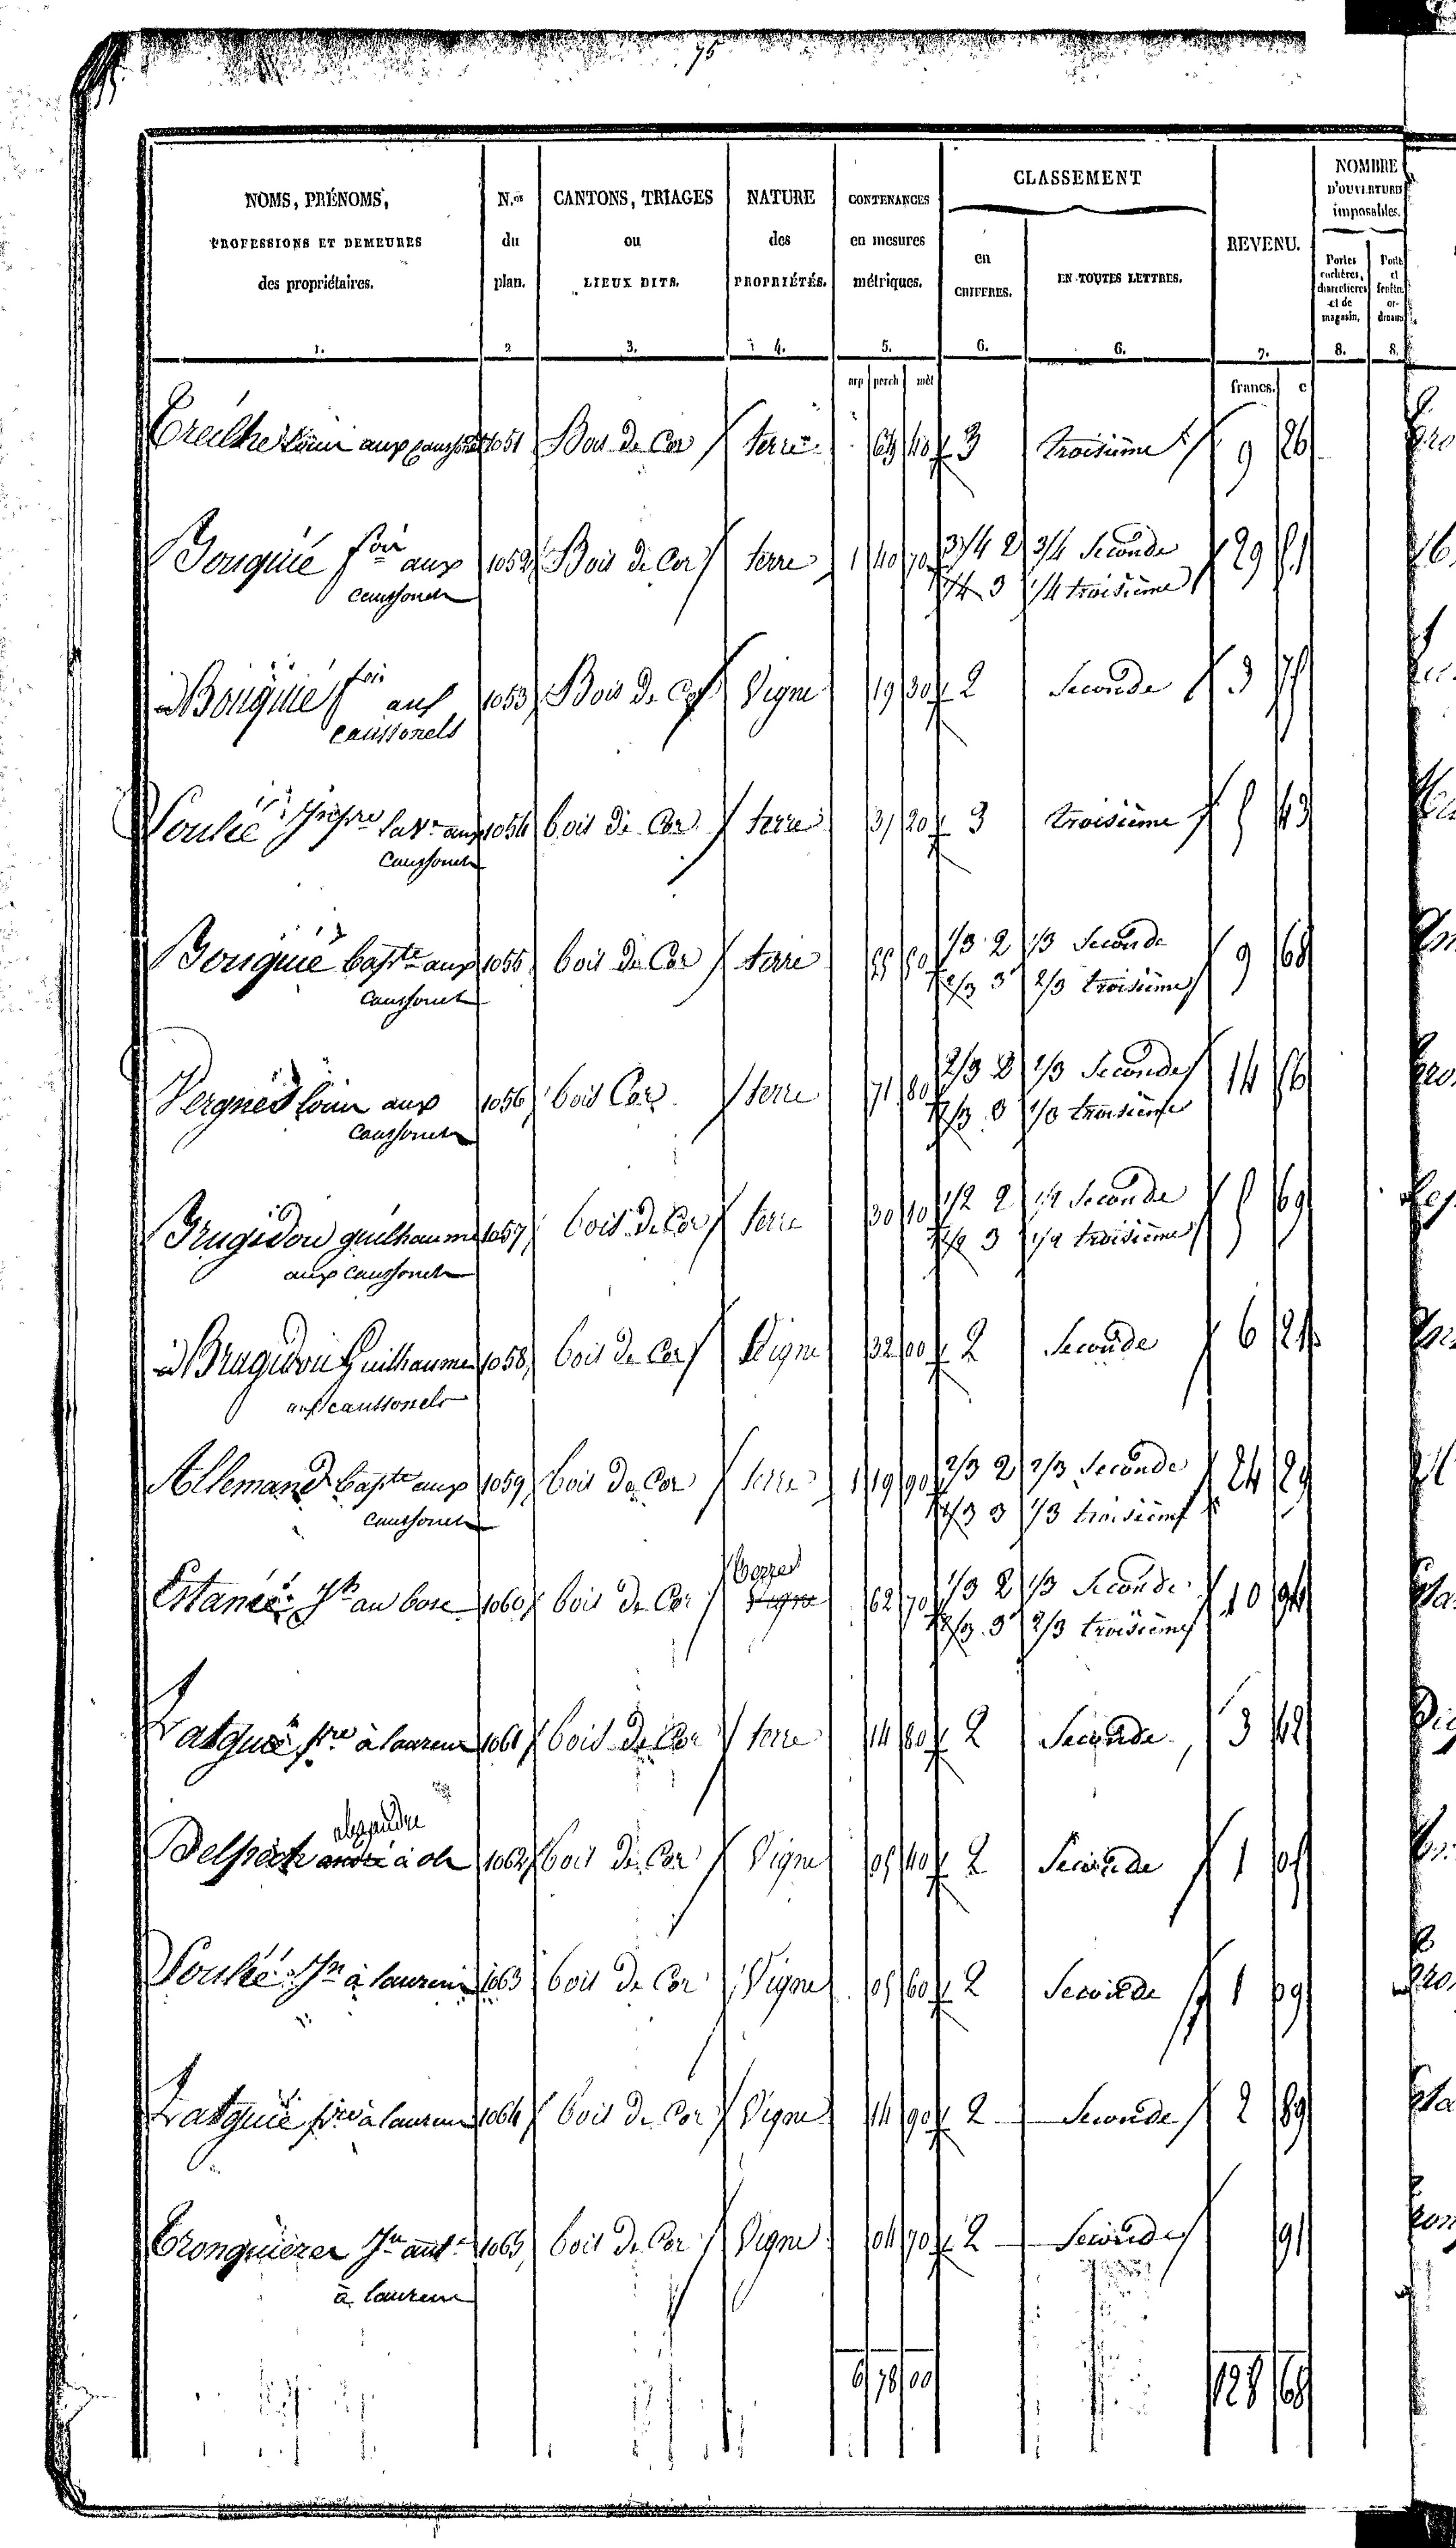 95
NOMS, PRÉNOMS, PROFESSIONS ET DEMEURES des propriétaires. 1.
N.os du plan. 2
CANTONS, TRIAGES ou LIEUX DITS. 3.
NATURE des PROPRIÉTÉS. 4.
CONTENANCES en mesures métriques. 5.
CLASSEMENT
en CHIFFRES. 6.
EN TOUTES LETTRES. 6.
REVENU. 7.
NOMBRE D'OUVERTURES imposables.
Portes cochères, charretières et de magasin, 8.
8.
arp perch mèt francs. c
Treilhe aux 1051 Bois de Cor terre 40 3 troisième 9 26
Bouquié foix aux 1052 Bois de Cor terre 1 40 70 3/4 2 3/4 Seconde 29 51
caussonels 1/4 3 1/4 troisième
Bouquié foix aux 1053 Bois de Cor Vigne 19 30 2 Seconde 3 75
caussonels
Soulié aux 1054 bois de Cor terre 31 20 3 troisième 5 43
caussonels
Bouquié Bapte aux 1055 bois de Cor terre 55 50 1/3 2 1/3 Seconde 9 68
caussonels 2/3 3 2/3 troisième
Vergnes aux 1056 bois Cor terre 71 80 2/3 2 2/3 Seconde 14 56
caussonels 1/3 3 1/3 troisième
Brugidou guilhaume 1057 bois de Cor terre 30 10 1/2 2 1/2 Seconde 5 69
aux caussonels 1/2 3 1/2 troisième
Brugidou Guilhaume 1058 bois de Cor Vigne 32 00 2 Seconde 6 21
aux caussonels
Allemand Bapte aux 1059 bois de Cor terre 1 19 90 2/3 2 2/3 Seconde 24 29
caussonels 1/3 3 1/3 troisième
terre
Estanié au bosc 1060 bois de Cor Vigne 62 70 1/3 2 1/3 Seconde 10 94
2/3 3 2/3 troisième
Latguié pre à 1061 bois de Cor terre 14 80 2 Seconde 3 42
alexandre
Delpech andré à 1062 bois de Cor Vigne 05 40 2 Seconde 1 05
Soulié Jn à 1063 bois de Cor Vigne 05 60 2 Seconde 1 09
Latguié pre à 1064 bois de Cor Vigne 14 90 2 Seconde 2 89
Tronquieres Jn 1065 bois de Cor Vigne 04 70 2 Seconde 91
6 78 00 128 68